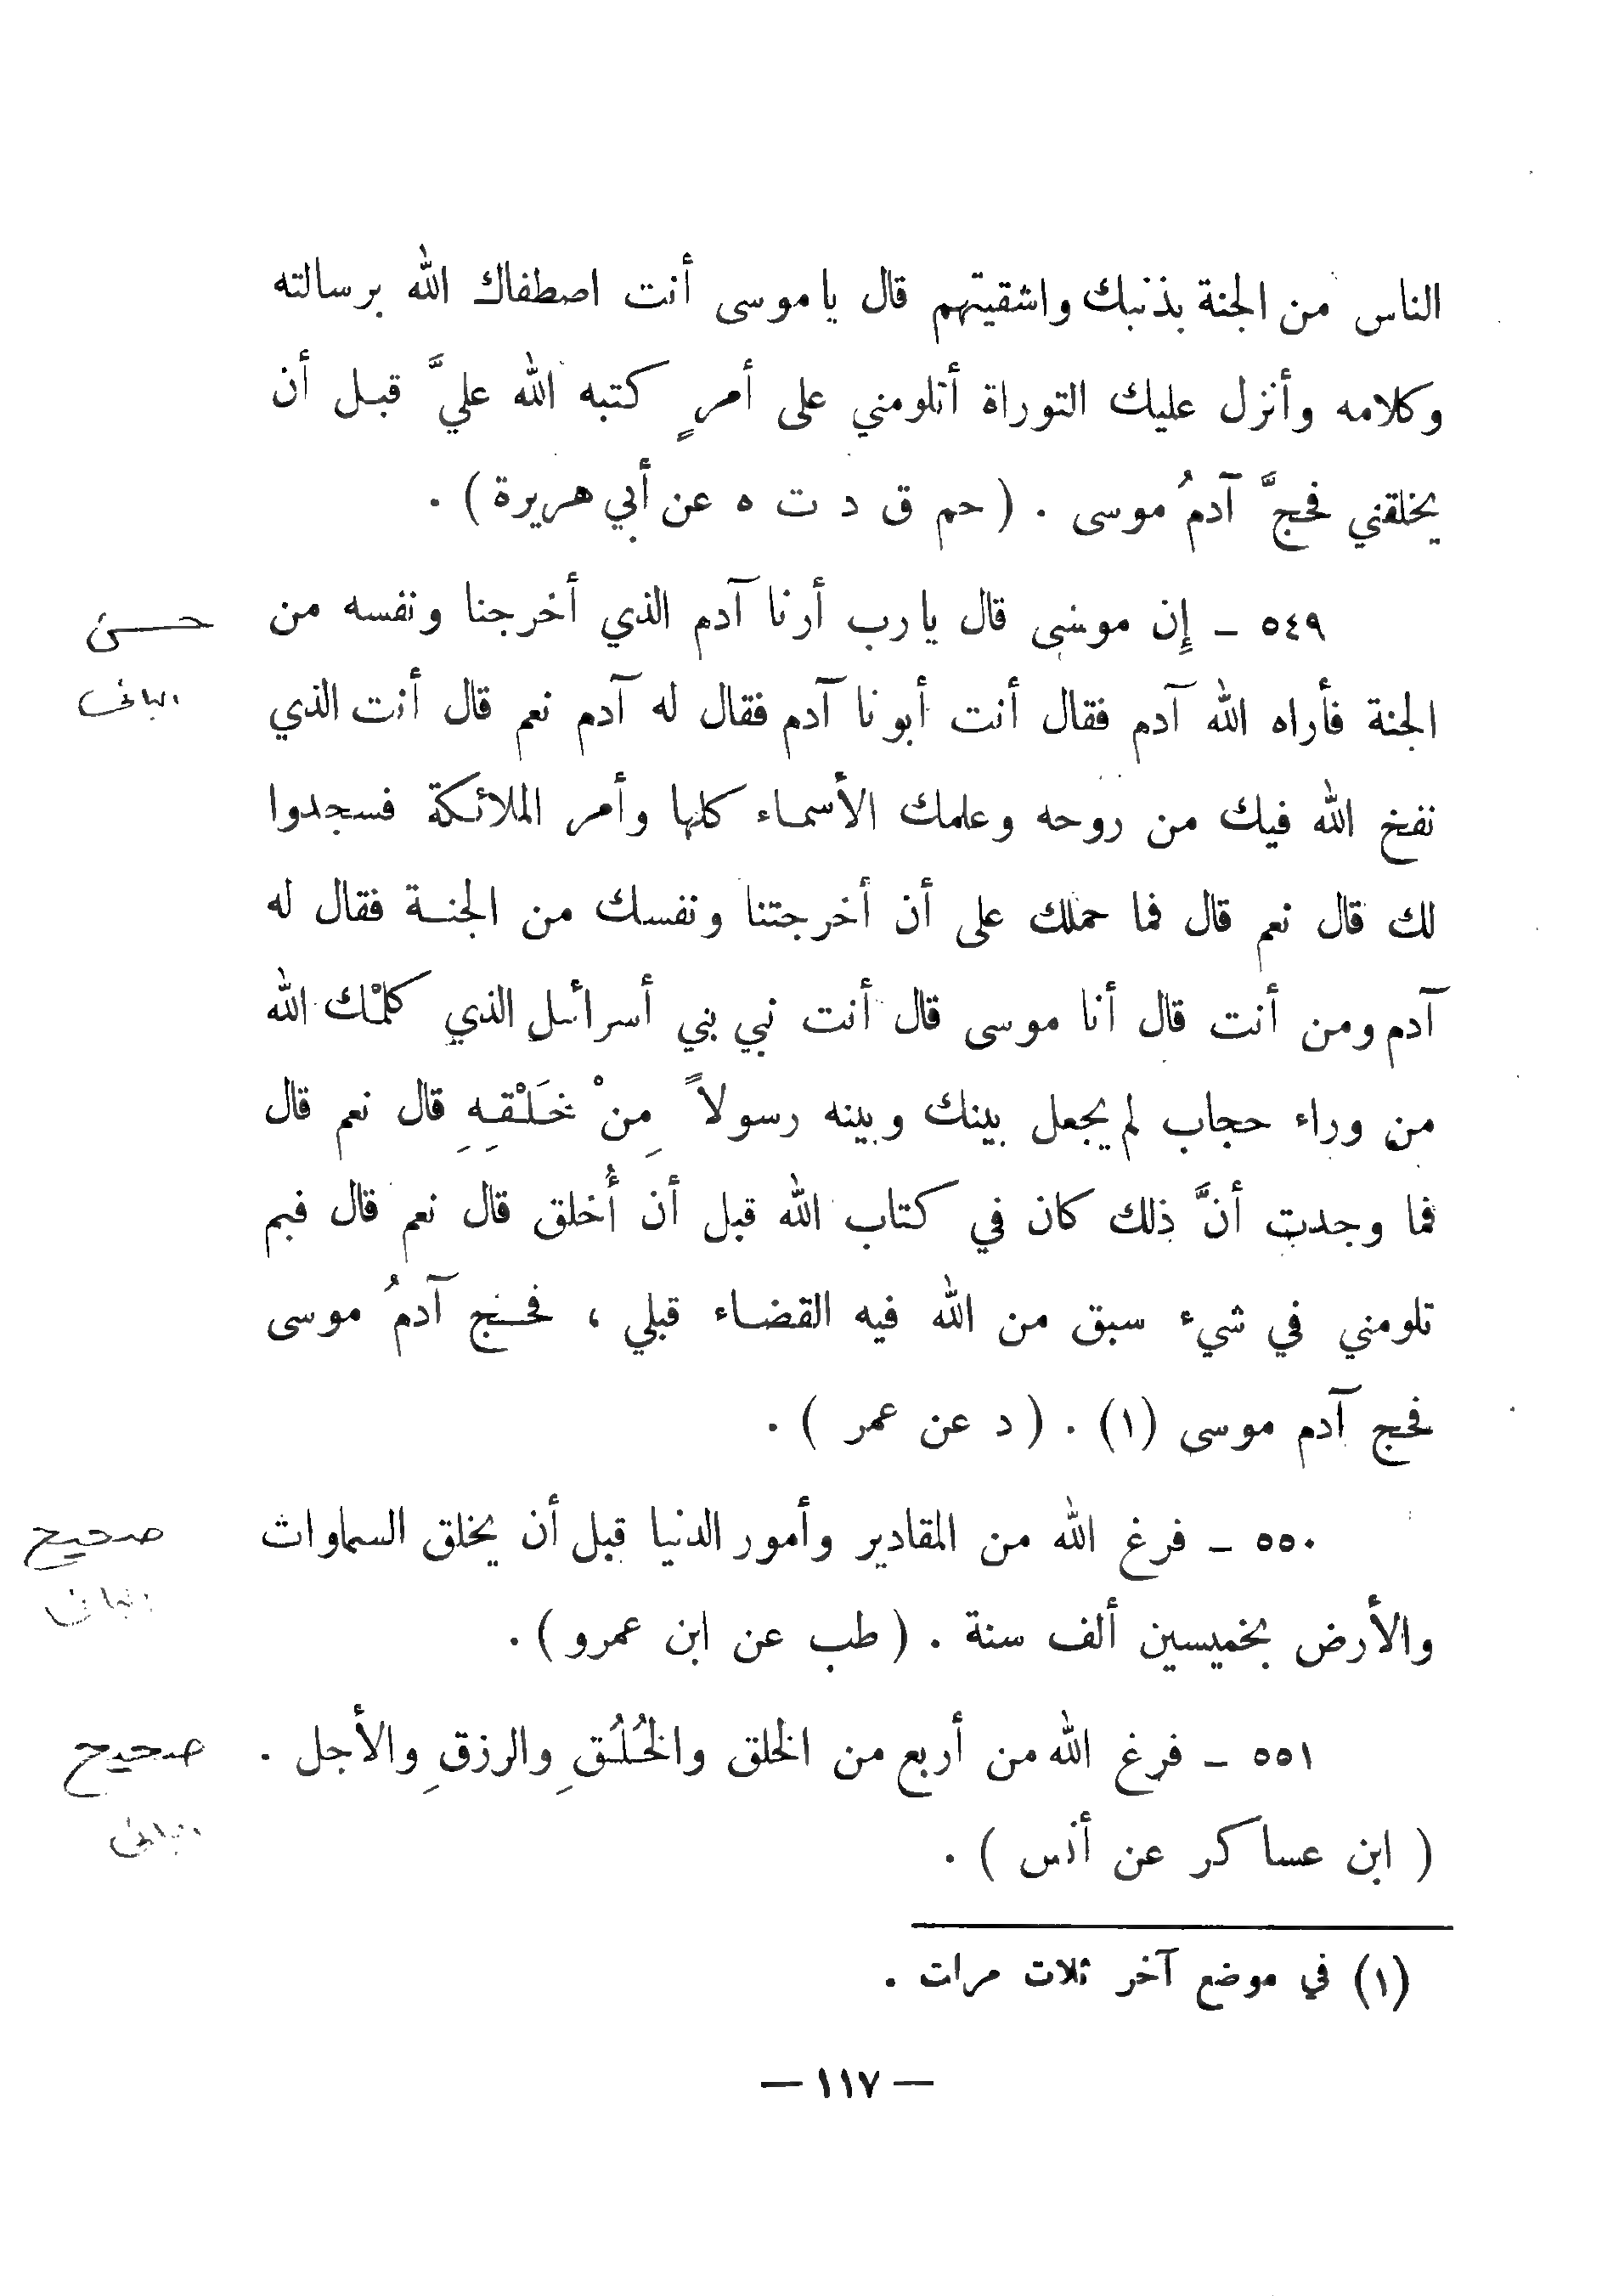 الناس من الجنة بذنبك واشقيتهم قال يا موسى أنت اصطفاك الله برسالته
وكلامه وأنزل عليك التوراة أتلومني على أمرٍ كتبه الله عليَّ قبل أن
يخلقني فحجَّ آدمُ موسى . ( حم ق د ت ه عن أبي هريرة ) .
٥٤٩ – إن موسى قال يا رب أرنا آدم الذي أخرجنا ونفسه من
حسن
الجنة فأراه الله آدم فقال أنت أبونا آدم فقال له آدم نعم قال أنت الذي
البانى
نفخ الله فيك من روحه وعلمك الأسماء كلها وأمر الملائكة فسجدوا
لك قال نعم قال فما حملك على أن أخرجتنا ونفسك من الجنة فقال له
آدم ومن أنت قال أنا موسى قال أنت نبي بني أسرائيل الذي كلمْك الله
من وراء حجاب لم يجعل بينك وبينه رسولاً مِنْ خَلْقِهِ قال نعم قال
فما وجدت أنَّ ذلك كان في كتاب الله قبل أن أُخلق قال نعم قال فبم
تلومني في شيء سبق من الله فيه القضاء قبلي ، فحج آدمُ موسى
فحج آدم موسى (١) . ( د عن عمر ) .
٥٥٠ – فرغ الله من المقادير وأمور الدنيا قبل أن يخلق السماوات
صحيح
البانى
والأرض بخميسين ألف سنة . ( طب عن ابن عمرو ) .
٥٥١ – فرغ الله من أربع من الخلق والخُلُقِ والرزقِ والأجل .
صحيح
البانى
( ابن عساكر عن أنس ) .
(١) في موضع آخر ثلاث مرات .
— ١١٧ —